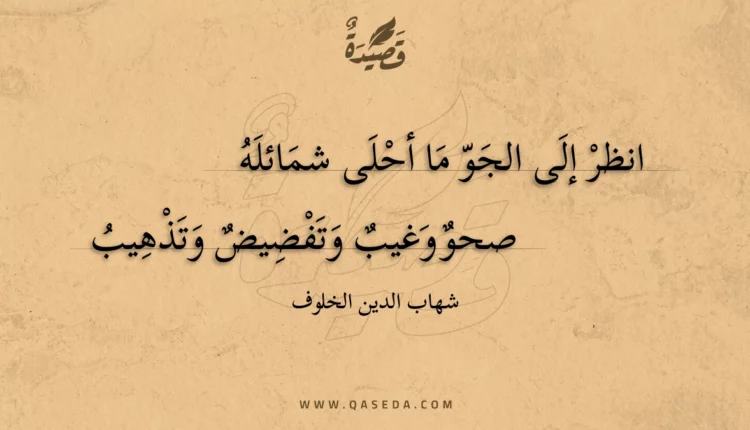 قَصِيدَةٌ
انظرْ إلَى الجَوّ مَا أحْلَى شمَائلَهُ
صحوٌ وَغيبٌ وَتَفْضِيضٌ وَتَذْهِيبُ
شهاب الدين الخلوف
WWW.QASEDA.COM